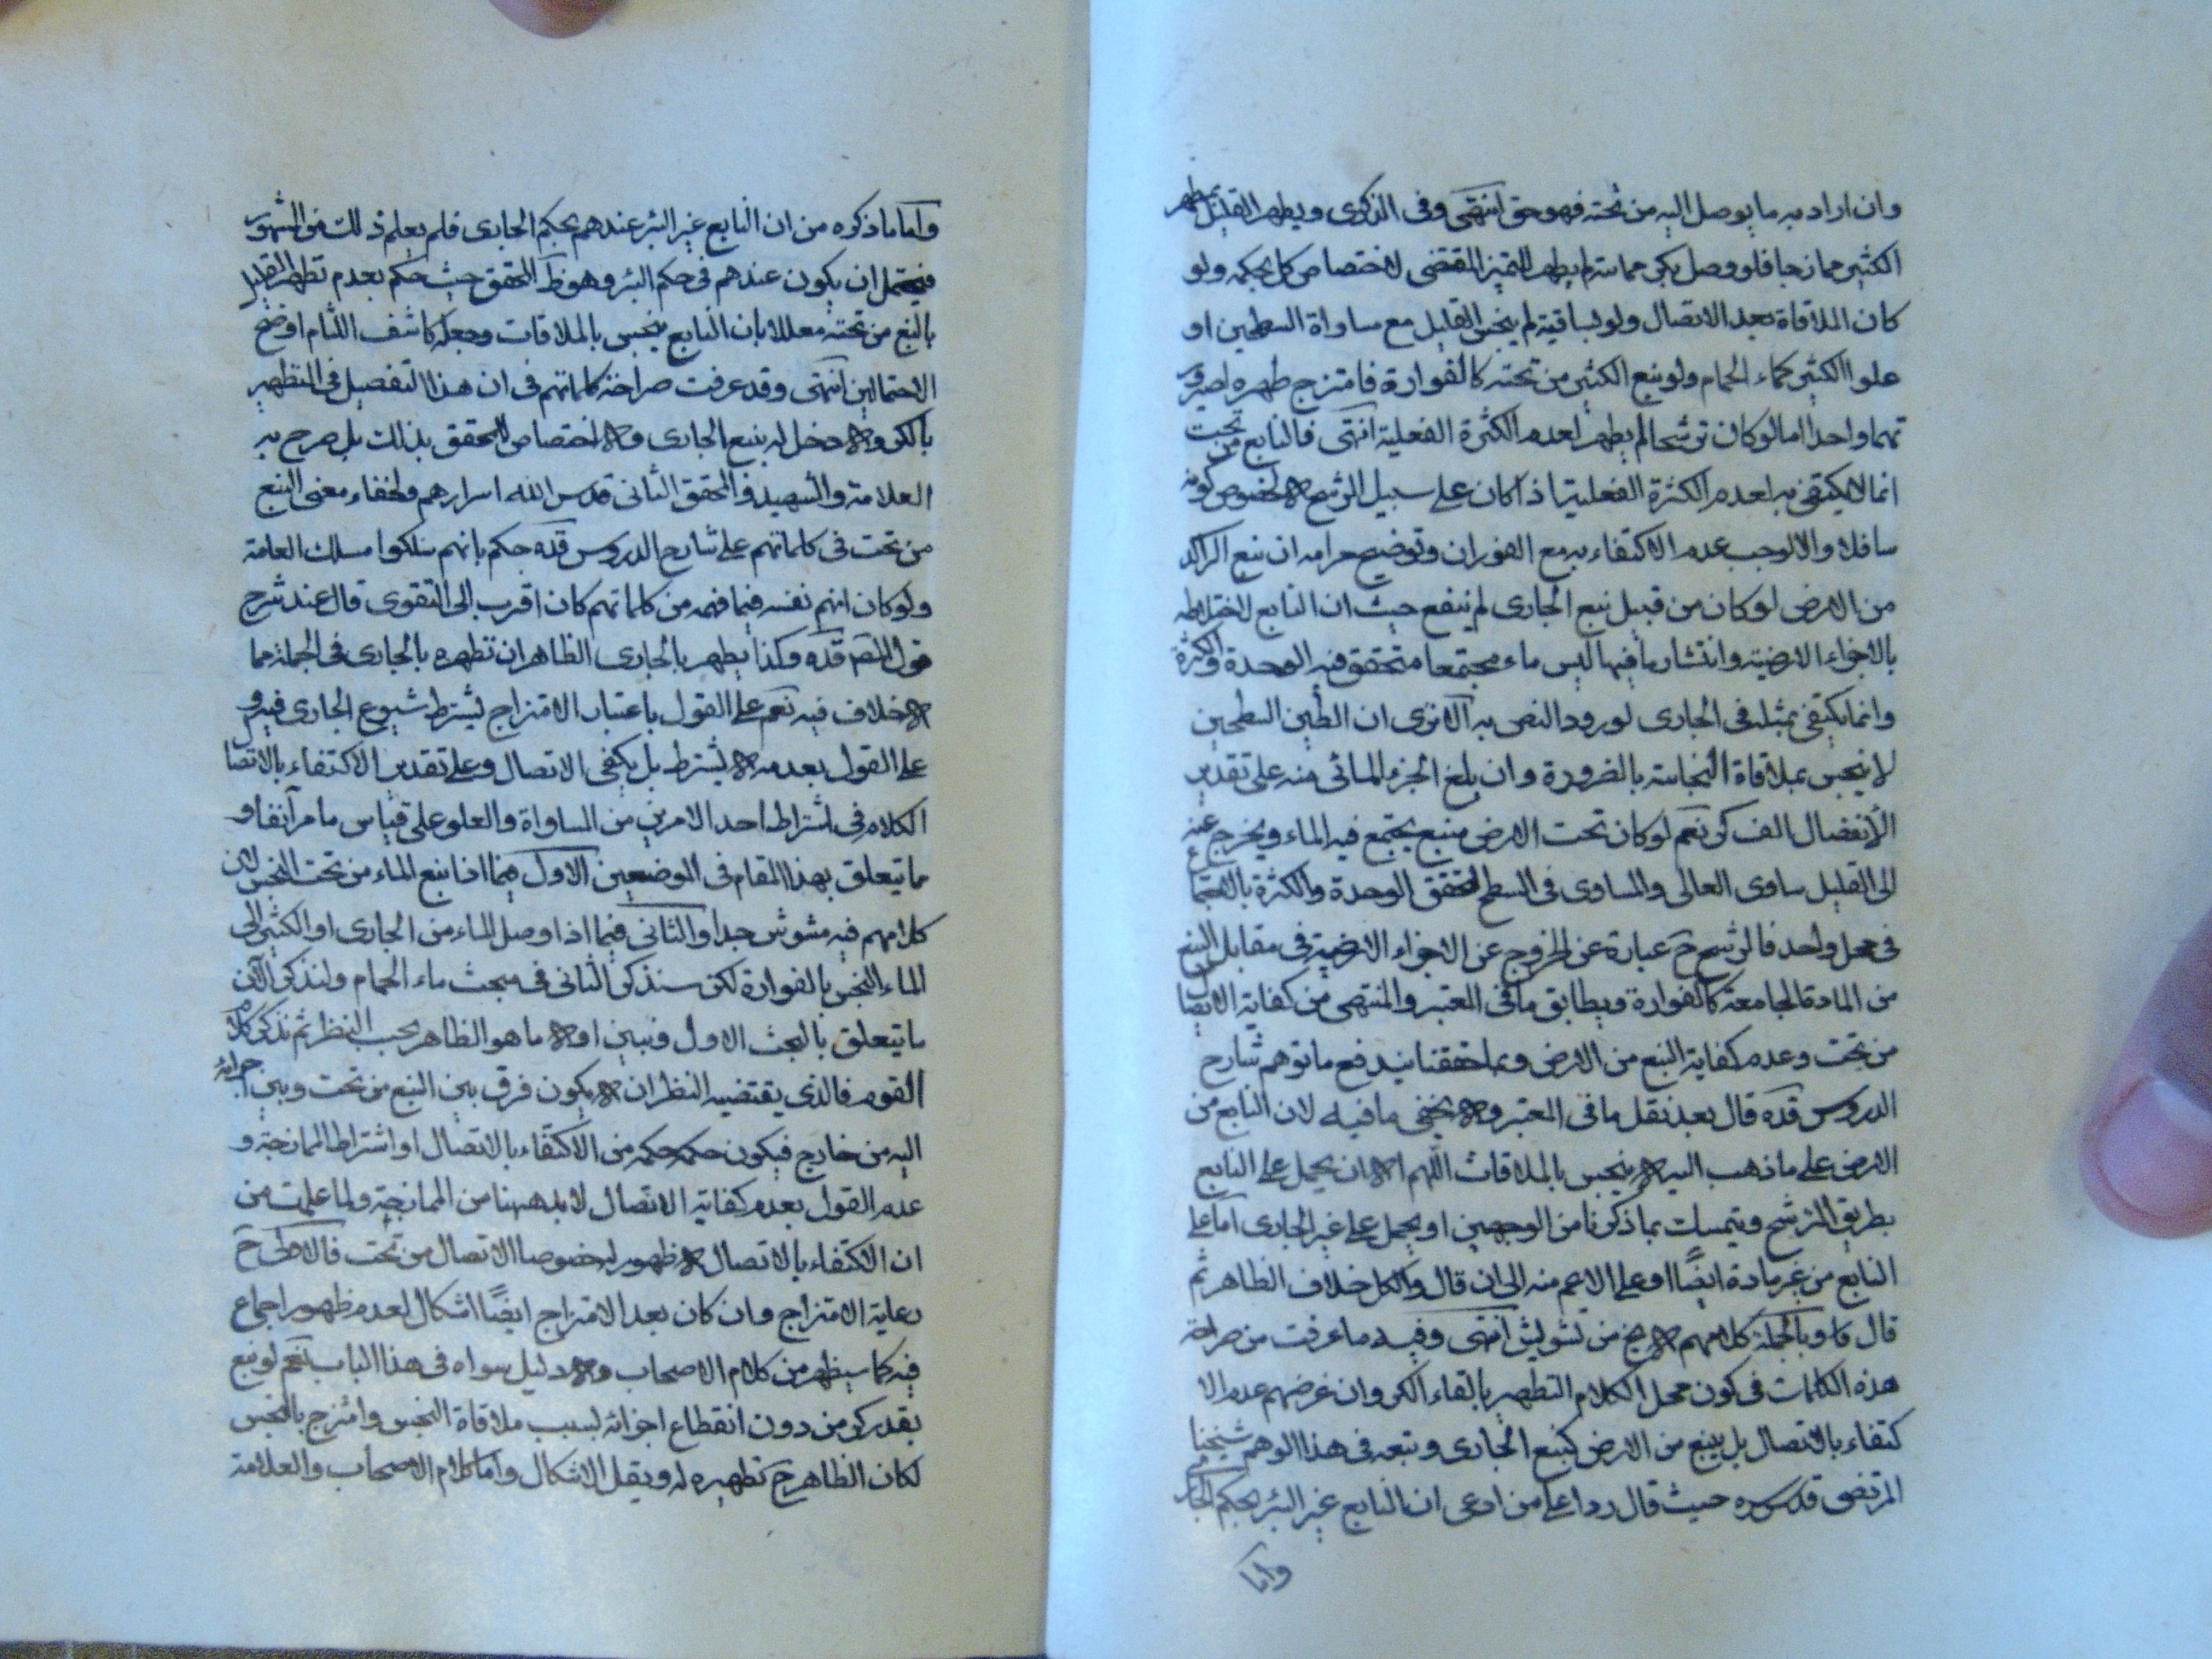 وان اراد به ما يوصل اليه من تحته فهو حق انتهى وفى الذكرى ويطهر القليل بمطهر
الكثير ممازجا فلو وصل بكر مماسة لم يطهر للتميز المقتضى لاختصاص كل بحكمه ولو
كان الملاقاة بعد الاتصال ولو بساقية لم ينجس القليل مع مساواة السطحين او
علو الكثير كماء الحمام ولو نبع الكثير من تحته كالفوارة فامتزج طهره لصيرور
تهما واحدا اما لو كان ترشحا لم يطهر لعدم الكثرة الفعلية انتهى فالنابع من تحت
انما لا يكتفى به لعدم الكثرة الفعلية اذا كان على سبيل الرشح لا لخصوص كونه
سافلا والا لوجب عدم الاكتفاء به مع الفوران وتوضيح مرامه ان نبع الراكد
من الارض لو كان من قبيل نبع الجارى لم ينفع حيث ان النابع لاختلاطه
بالاجزاء الارضية وانتشارها فيها ليس ماء مجتمعا متحقق فيه الوحدة والكثرة
وانما يكتفى بمثله فى الجارى لورود النص به الا ترى ان الطين
لا ينجس بملاقاة النجاسة بالضرورة وان بلغ الجزء المائى منه على تقدير
الانفصال الف كر نعم لو كان تحت الارض منبع يجتمع فيه الماء ويخرج عنه
الى القليل ساوى العالى والمساوى فى السطح لتحقق الوحدة والكثرة بالاجتماع
فى محل واحد فالرشح ح عبارة عن الخروج عن الاجزاء الارضية فى مقابل النبع
من المادة الجامعة كالفوارة ويطابق ما فى المعتبر والمنتهى من كفاية الاتصال
من تحت وعدم كفاية النبع من الارض وبما حققنا يندفع ما توهم شارح
الدروس قده قال بعد نقل ما فى المعتبر ولا يخفى ما فيه لان النابع من
الارض على ما ذهب اليه لا ينجس بالملاقات اللهم الا ان يحمل على النابع
بطريق الترشح ويتمسك بما ذكرنا من الوجهين او يحمل على غير الجارى اما على
النابع من غير مادة ايضًا او على الاعم منه الى ان قال والكل خلاف الظاهر ثم
قال وبالجملة كلامهم لا يخ من تشويش انتهى وفيه ما عرفت من صراحة
هذه الكلمات فى كون محل الكلام التطهير بالقاء الكر وان غرضهم عدم الا
كتفاء بالاتصال بل ينبع من الارض كنبع الجارى وتبعه فى هذا الوهم شيخنا
المرتضى قدس سره حيث قال ردا على من ادعى ان النابع غير البئر بحكم الجارى
واما
واما ما ذكره من ان النابع غير البئر عندهم بحكم الجارى فلم يعلم ذلك من المشهور
فيحتمل ان يكون عندهم فى حكم البئر وهو ظ المحقق حيث حكم بعدم تطهر القليل
بالنبع من تحته معللا بان النابع ينجس بالملاقات وجعله كاشف اللثام اوضح
الاحتمالين انتهى وقد عرفت صراحة كلماتهم فى ان هذا التفصيل فى التطهير
بالكر ولا دخل له بنبع الجارى ولا اختصاص للمحقق بذلك بل صرح به
العلامة والشهيد والمحقق الثانى قدس الله اسرارهم ولخفاء معنى النبع
من تحت فى كلماتهم على شارح الدروس قده حكم بانهم سلكوا مسلك العامة
ولو كان اتهم نفسه فيما فهمه من كلماتهم كان اقرب الى التقوى قال عند شرح
قول المصَ قده وكذا يطهر بالجارى الظاهر ان تطهره بالجارى فى الجملة مما
لا خلاف فيه نعم على القول باعتبار الامتزاج يشترط شيوع الجارى فيه و
على القول بعدمه لا يشترط بل يكفى الاتصال وعلى تقدير الاكتفاء بالاتصال
الكلام فى اشتراط احد الامرين من المساواة والعلو على قياس ما مر آنفا و
ما يتعلق بهذا المقام فى الموضعين الاول فيما اذا نبع الماء من تحت النجس لان
كلامهم فيه مشوش جدا والثانى فيما اذا وصل الماء من الجارى او الكثير الى
الماء النجس بالفوارة لكن سنذكر الثانى فى مبحث ماء الحمام ولنذكر الآن
ما يتعلق بالبحث الاول ونبين اولا ما هو الظاهر بحسب النظر ثم نذكر كلام
القوم فالذى يقتضيه النظر ان لا يكون فرق بين النبع من تحت وبين اجرائه
اليه من خارج فيكون حكمه حكمه من الاكتفاء بالاتصال او اشتراط الممازجة و
عدم القول بعدم كفاية الاتصال لا بد ههنا من الممازجة ولما علمت من
ان الاكتفاء بالاتصال لا ظهور له خصوصا الاتصال من تحت فالاولى ح
رعاية الامتزاج وان كان بعد الامتزاج ايضًا اشكال لعدم ظهور اجماع
فيه كما سيظهر من كلام الاصحاب ولا دليل سواه فى هذا الباب نعم لو نبع
بقدر كر من دون انقطاع اجزائه بسبب ملاقاة النجس وامتزج بالنجس
لكان الظاهر ح تطهيره له ويقل الاشكال واما كلام الاصحاب والعلامة